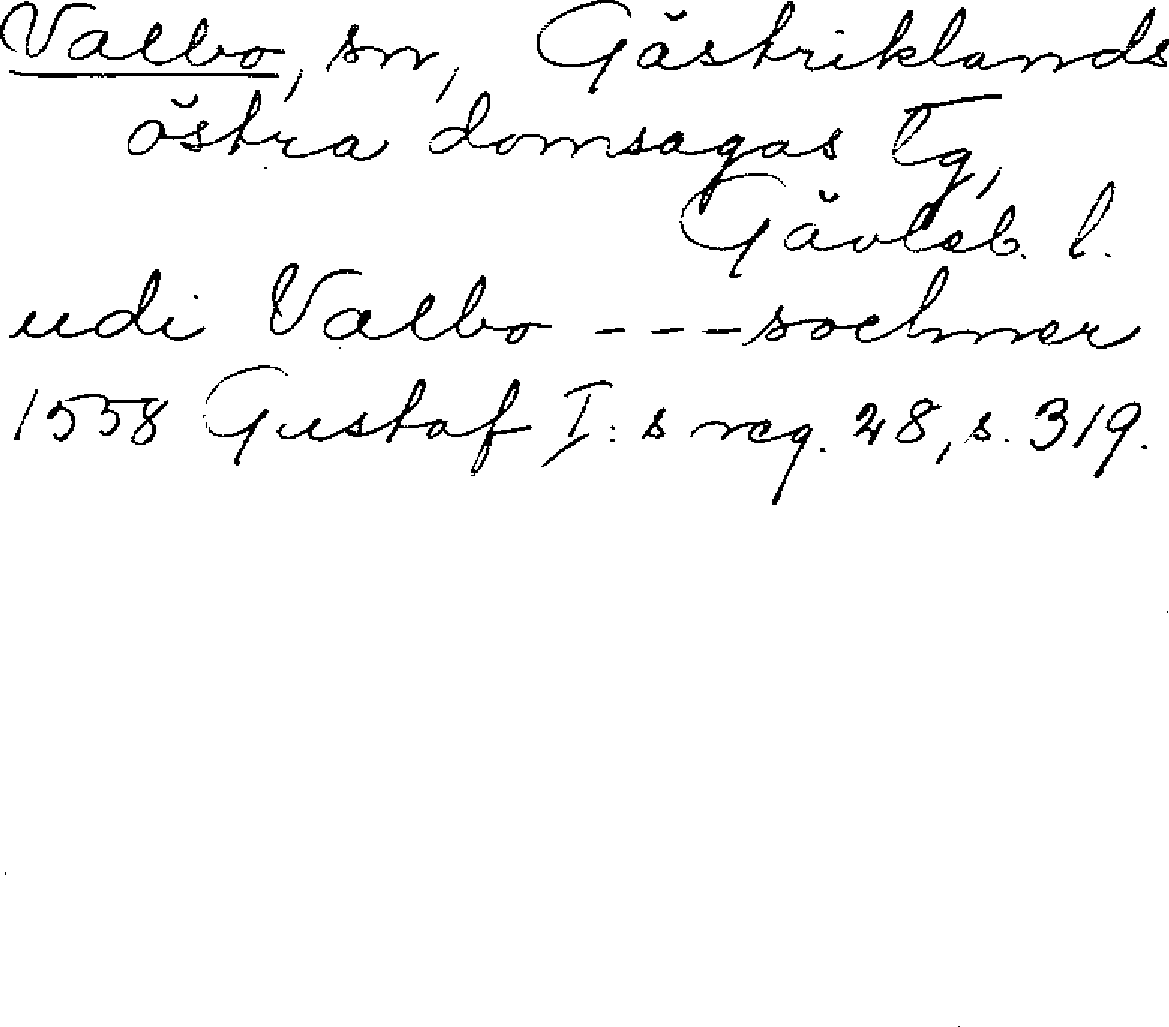 Valbo, sn, Gästriklands
östra domsagas tg,
Gävleb. l.
udi Valbo --- sochner
1558 Gustaf I:s reg. 28, s. 319.